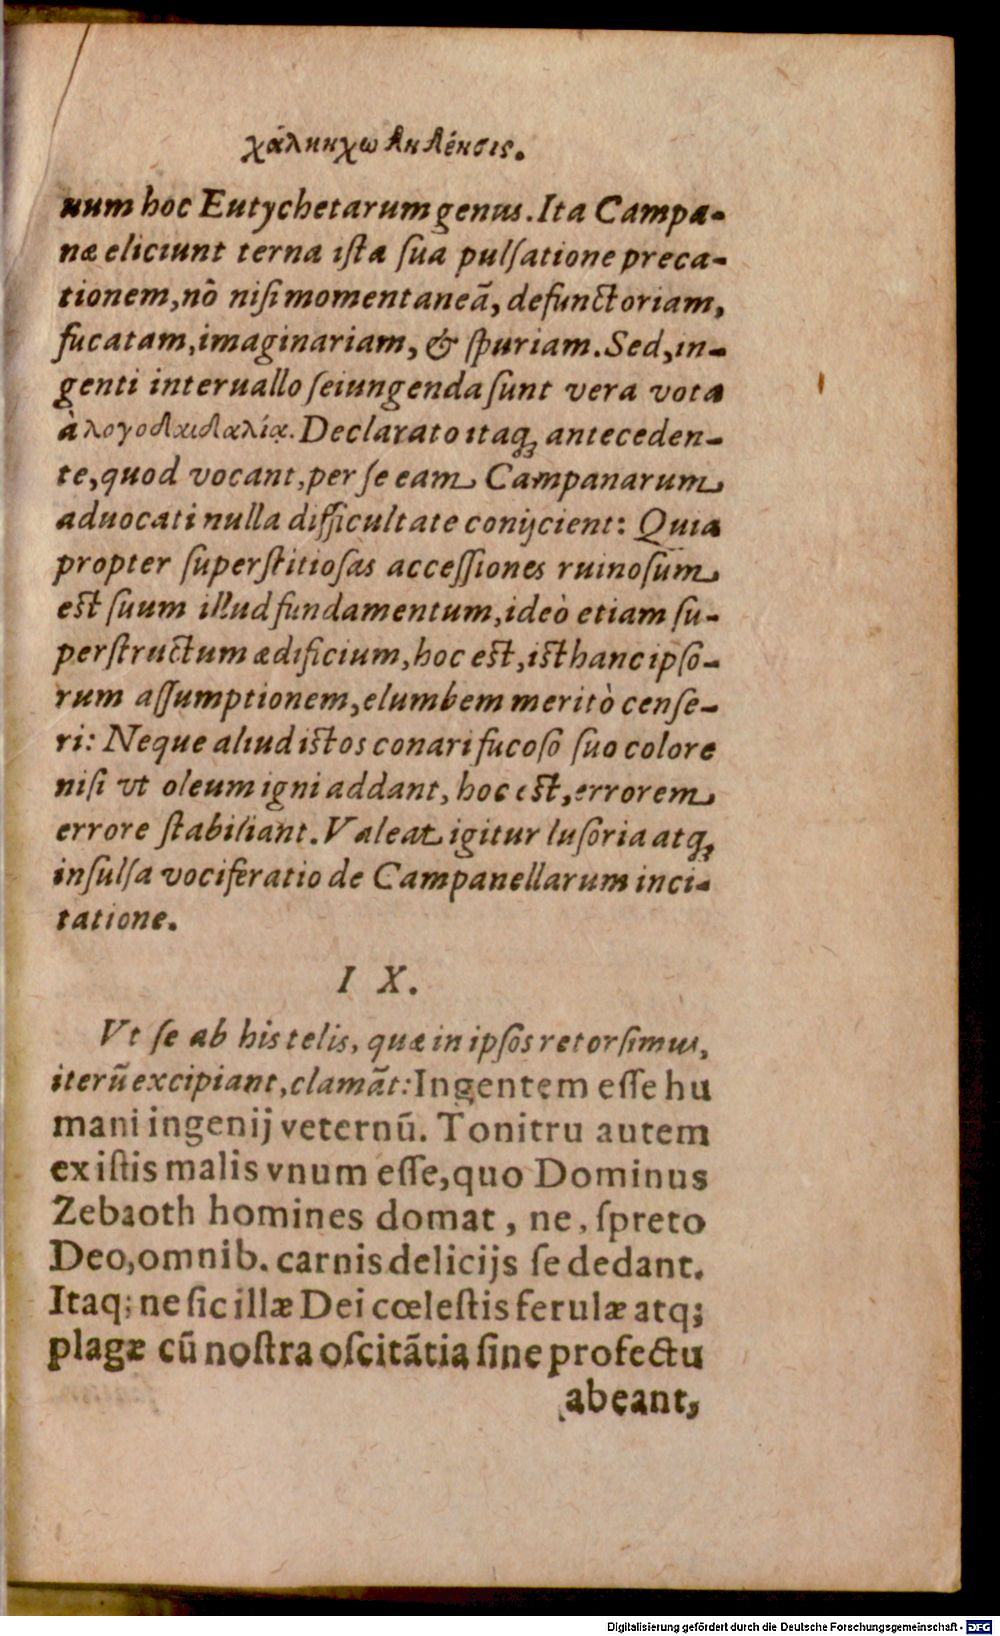 χάληκχωδηδένσις.
uum hoc Eutychetarum genus. Ita Campa-
næ eliciunt terna ista sua pulsatione preca-
tionem, nõ nisi momentaneã, defunctoriam,
fucatam, imaginariam, & spuriam. Sed, in-
genti interuallo seiungenda sunt vera vota
à λογοδαιδαλίᾳ. Declarato itaq; anteceden-
te, quod vocant, per se eam Campanarum
aduocati nulla difficultate conijcient: Quia
propter superstitiosas accessiones ruinosum
est suum illud fundamentum, ideò etiam su-
perstructum ædificium, hoc est, isthanc ipso-
rum assumptionem, elumbem meritò cense-
ri: Neque aliud istos conari fucoso suo colore
nisi vt oleum igni addant, hoc est, errorem
errore stabiliant. Valeat igitur lusoria atq;
insulsa vociferatio de Campanellarum inci-
tatione.
I X.
Vt se ab his telis, quæ in ipsos retorsimus,
iterũ excipiant, clamãt: Ingentem esse hu
mani ingenij veternũ. Tonitru autem
ex istis malis vnum esse, quo Dominus
Zebaoth homines domat, ne, spreto
Deo, omnib. carnis delicijs se dedant.
Itaq; ne sic illæ Dei cœlestis ferulæ atq;
plagæ cũ nostra oscitãtia sine profectu
abeant,
Digitalisierung gefördert durch die Deutsche Forschungsgemeinschaft - DFG